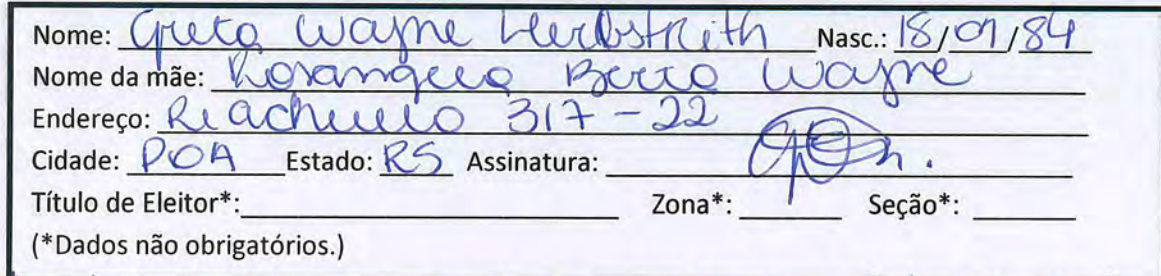 Nome: Greta Wayne Herbstrith Nasc.: 18/01/84
Nome da mãe: Rosangela Berro Wayne
Endereço: Riachuelo 317 - 22
Cidade: POA Estado: RS Assinatura:
Título de Eleitor*: Zona*: Seção*:
(*Dados não obrigatórios.)